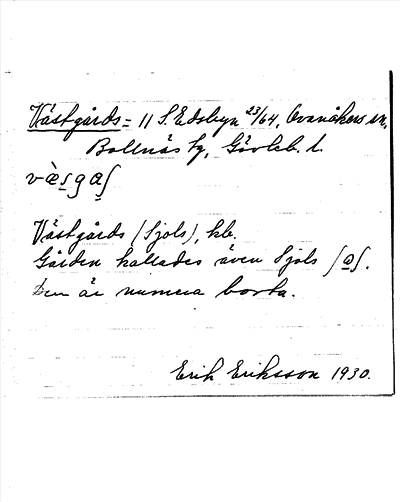 Västgårds = 11 S. Edsbyn 23/64, Ovanåkers sn,
Bollnäs tg, Gävleb. l.
vὲsgaʃ
Västgårds (Sjols), hb.
Gården kallades även Sjols ʃaʃ.
Den är numera borta.
Erik Eriksson 1930.